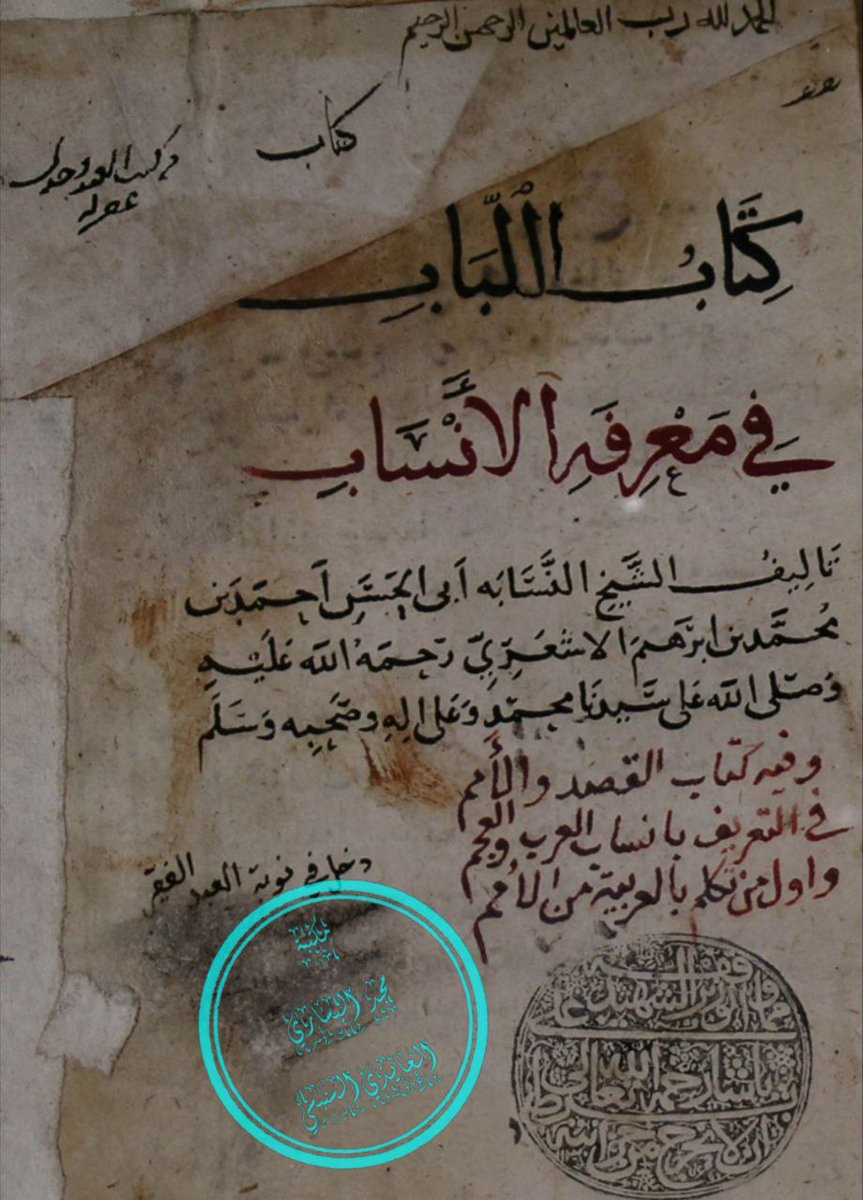 الحمد لله رب العالمين الرحمن الرحيم
كتاب
كِتَابُ اللُّبَابِ
فِي مَعْرِفَةِ الأَنْسَابِ
تَالِيفُ الشَّيْخِ النَّسَّابَه اَبى الحَسَنِ اَحمَد بن
مُحَمَّد بن ابرَهِمَ الاشعَرِيّ رَحِمَهُ اللهُ عَلَيْهِ
وَصَلى الله عَلى سَيّدنَا محمّدٍ وَعَلى الِهِ وَصَحبِه وَسَلَّم
وفيه كتاب القصد والأمم
في التعريف بانساب العرب والعجم
واول من تكلم بالعربية من الأمم
دخل في نوبة العبد الفقير
مكتبة
الوزير الشهيد علي
باشا رحمه الله تعالى